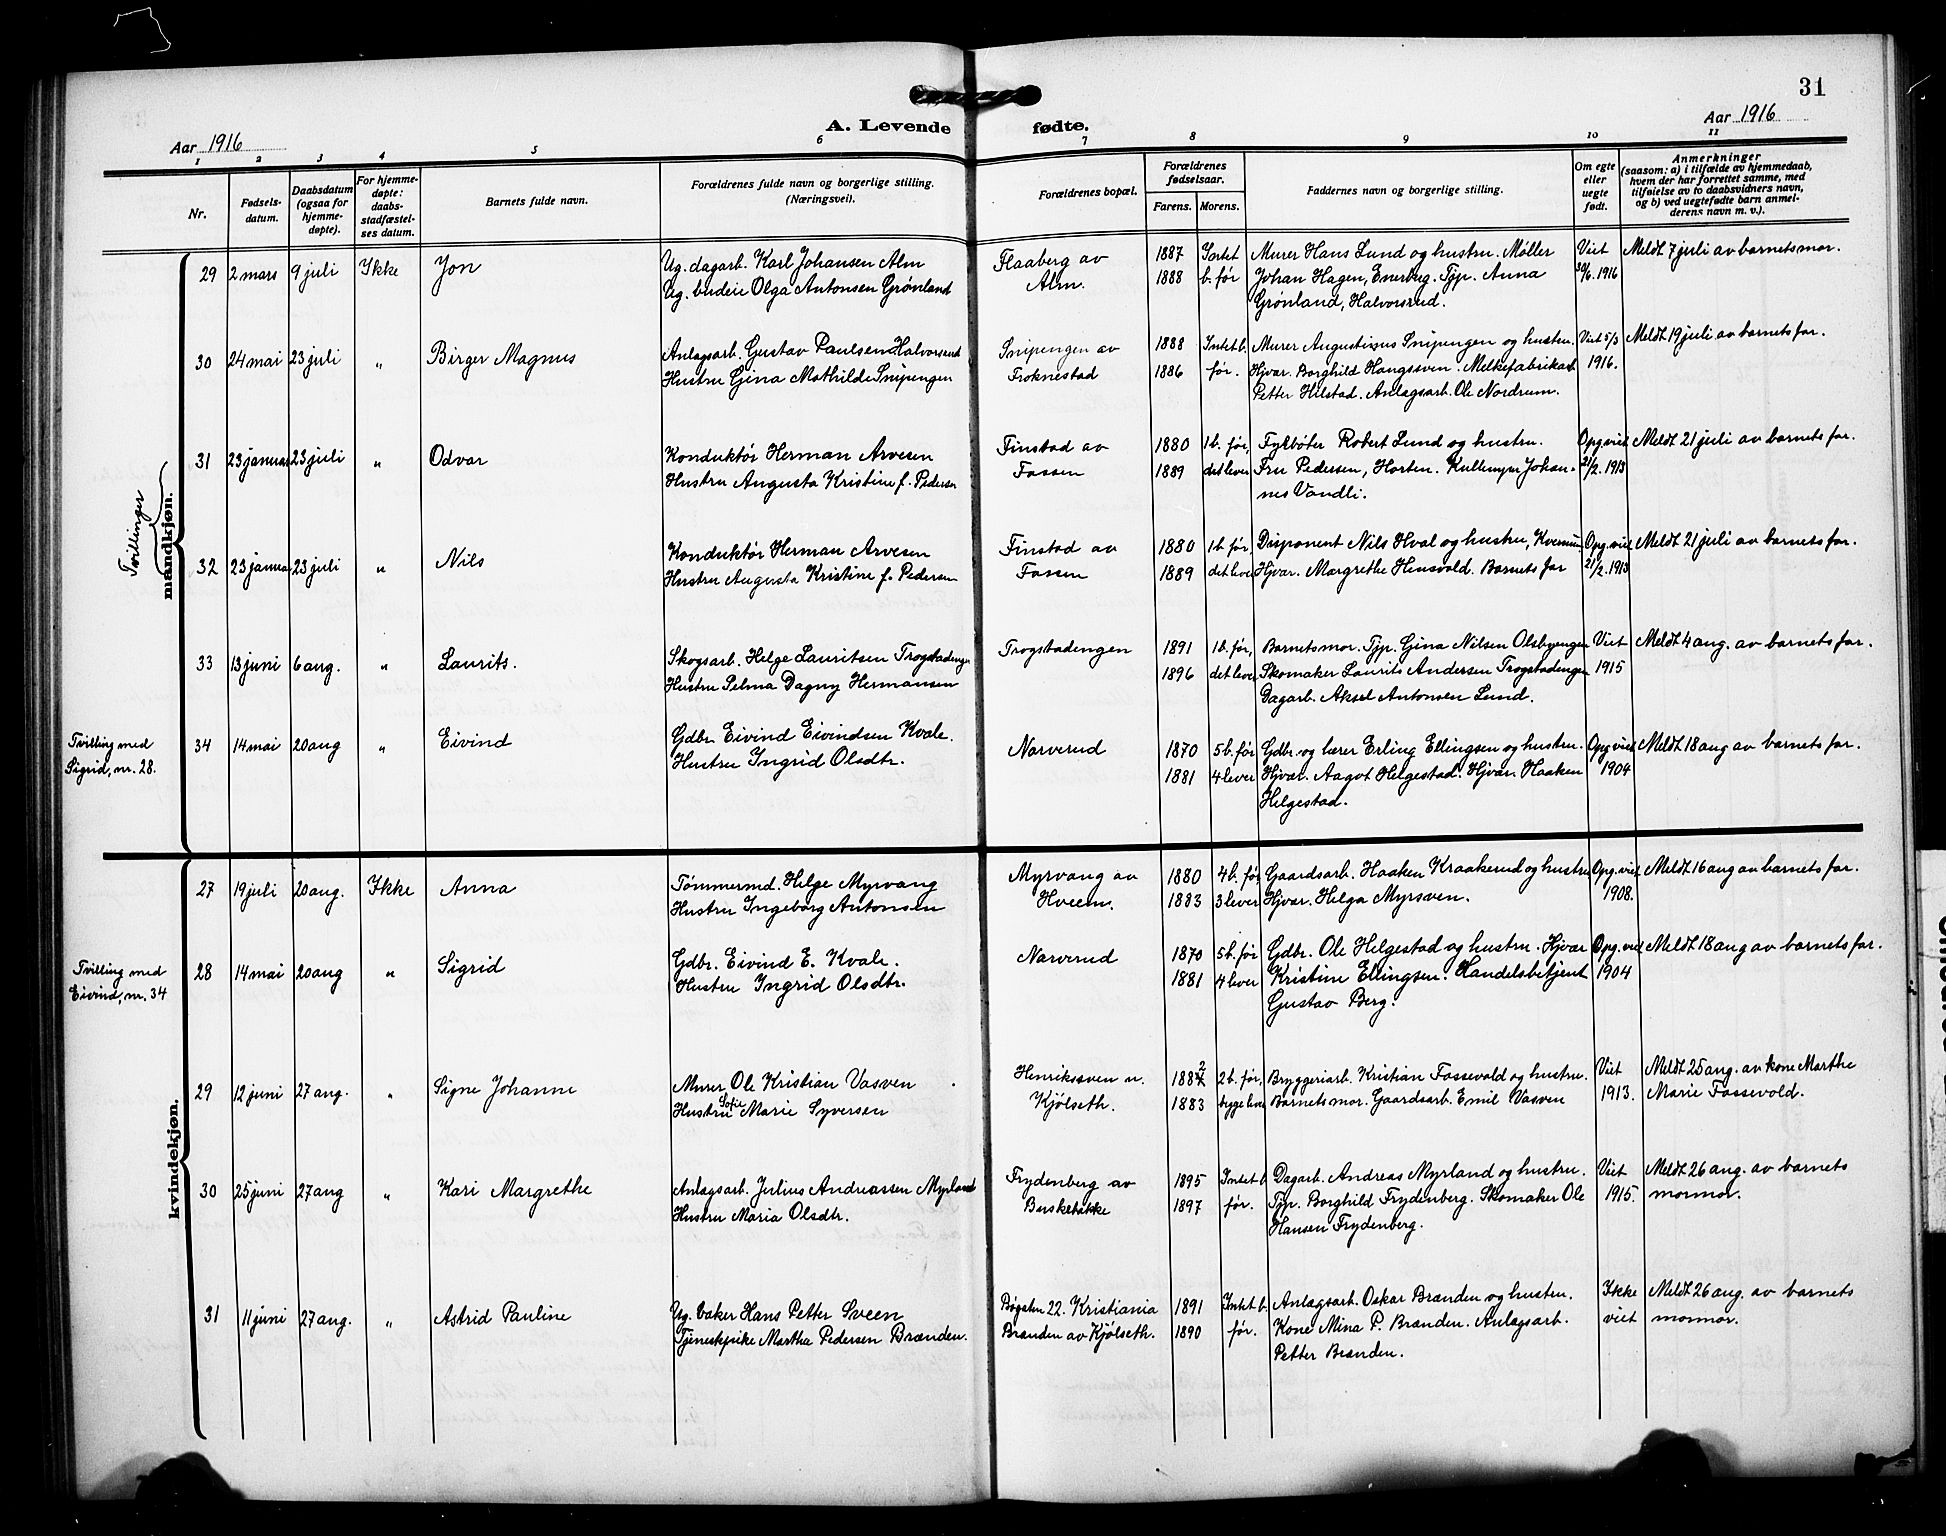 31
A. Levende fødte.
Aar 1916
Aar 1916
1 2 3 4 5 6 7 8 9 10 11
Nr.
Fødsels-
datum.
Daabsdatum
(ogsaa for
hjemme-
døpte).
For hjemme-
døpte:
daabs-
stadfæstel-
ses datum.
Barnets fulde navn.
Forældrenes fulde navn og borgerlige stilling.
(Næringsvei).
Forældrenes bopæl.
Forældrenes
fødselsaar.
Farens. Morens.
Faddernes navn og borgerlige stilling.
Om egte
eller
uegte
født.
Anmerkninger
(saasom: a) i tilfælde av hjemmedaab,
hvem der har forrettet samme, med
tilføielse av to daabsvidners navn,
og b) ved uegtefødte barn anmel-
derens navn m. v.).
mandkjøn.
29 2 mars 9 juli Ikke Jon
Ug. dagarb. Karl Johansen Alm
Ug. budeie Olga Antonsen Grønland
Flaaberg av
Alm.
1887 Intet
1888 b. før
Murer Hans Lund og hustru. Møller
Johan Hagen, Enerhug. Tjp. Anna
Grønland, Halvorsrud.
Viet
30/6. 1916
Meldt 7 juli av barnets mor.
30 24 mai 23 juli " Birger Magnus
Anlagsarb. Gustav Paulsen Halvorsrud
Hustru Gina Mathilde Snipengen
Snipengen av
Froknestad
1888 Intet b.
1886 før.
Murer Augustinus Snipengen og hustru.
Hjvar. Borghild Haugssven. Melkefabrikarb.
Petter Hilstad. Anlagsarb. Ole Nordrum.
Viet 5/3
1916.
Meldt 19 juli av barnets far.
Tvillinger
31 23 januar 23 juli " Odvar
Konduktør Herman Arvesen
Hustru Augusta Kristine f. Pedersen
Finstad av
Fossen
1880 1 b. før,
1889 det lever
Fyrbøter Robert Lund og hustru.
Fru Pedersen, Horten. Johan-
nes Vandli.
Opg. viet
21/2. 1913
Meldt 21 juli av barnets far.
32 23 januar 23 juli " Nils
Konduktør Herman Arvesen
Hustru Augusta Kristine f. Pedersen
Finstad av
Fossen
1880 1 b. før,
1889 det lever
Disponent Nils Hval og hustru,
Hjvar. Margrethe Hensvold. Barnets far
Opg. viet
21/2. 1913
Meldt 21 juli av barnets far.
33 13 juni 6 aug. " Laurits.
Skogsarb. Helge Lauritsen Trogstadengen
Hustru Selma Dagny Hermansen
Trogstadengen
1891 1 b. før,
1896 det lever
Barnets mor. Tjp. Gina Nilsen Olsbyengen
Skomaker Laurits Andersen Trogstadengen
Dagarb. Aksel Antonsen Lund.
Viet
1915
Meldt 4 aug. av barnets far.
Tvilling med
Sigrid, nr. 28.
34 14 mai 20 aug " Eivind
Gdbr. Eivind Eivindsen Kvale.
Hustru Ingrid Olsdtr.
Narverud
1870 5 b. før
1881 4 lever
Gdbr. og lærer Erling Ellingsen og hustru.
Hjvar. Aagot Helgestad. Hjvar. Haaken
Helgestad.
Opg. viet
1904
Meldt 18 aug av barnets far.
kvindekjøn.
27 19 juli 20 aug. Ikke Anna
Tømmermd. Helge Myrvang
Hustru Ingeborg Antonsen
Myrvang av
Hveem.
1880 4 b. før
1883 3 lever
Gaardsarb. Haaken Kraakerud og hustru
Hjvar. Helga Myrsven.
Opg. viet
1908.
Meldt 16 aug av barnets far.
Tvilling med
Eivind, nr. 34
28 14 mai 20 aug " Sigrid
Gdbr. Eivind E. Kvale.
Hustru Ingrid Olsdtr.
Narverud
1870 5 b. før
1881 4 lever
Gdbr. Ole Helgestad og hustru. Hjvar
Kristine Ellingsen. Handelsbetjent
Gustav Berg.
Opg. viet
1904
Meldt 18 aug av barnets far.
29 12 juni 27 aug. " Signe Johanne
Murer Ole Kristian Vasven
Hustru Sofie Marie Syversen
Henrikssven u.
Kjölseth.
1882 2 b. før,
1883 begge lever
Bryggeriarb. Kristian Fossevold og hustru.
Barnets mor. Gaardsarb. Emil Vasven
Viet
1913.
Meldt 25 aug. av kone Marthe
Marie Fossevold.
30 25 juni 27 aug " Kari Margrethe
Anlagsarb. Julius Andreassen Myrland
Hustru Maria Olsdtr.
Frydenberg av
Buskebakke
1895 Intet b
1897 før.
Dagarb. Andreas Myrland og hustru.
Tjp. Borghild Frydenberg. Skomaker Ole
Hansen Frydenberg.
Viet
1915.
Meldt 26 aug. av barnets
mormor.
31 11 juni 27 aug. " Astrid Pauline
Ug. baker Hans Petter Sveen
Tjenestepike Martha Pedersen Brænden.
Bøgsten 22. Kristiania
Brænden av Kjölseth.
1891 Intet b.
1890 før.
Anlagsarb. Oskar Brænden og hustru.
Kone Mina P. Brænden. Anlagsarb.
Petter Brænden.
Ikke
viet
Meldt 26 aug. av barnets
mormor.